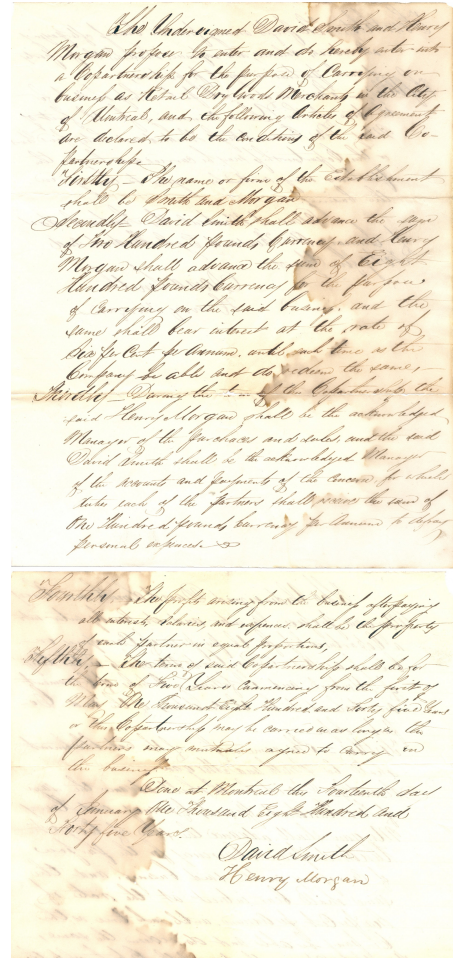 The Undersigned David Smith and Henry
Morgan propose to enter and do hereby enter into
a Copartnership for the purpose of Carrying on
business as Retail Dry Goods Merchants in the City
of Montreal, and the following Articles of Agreement
are declared to be the conditions of the said Co-
partnership.
Firstly - The name or firm of the Establishment
shall be Smith and Morgan
Secondly - David Smith shall advance the sum
of Two Hundred Pounds Currency and Henry
Morgan shall advance the sum of Eight
Hundred Pounds Currency for the purpose
of carrying on the said business, and the
same shall bear interest at the rate of
Six per Cent per Annum, until such time as the
Company be able and do redeem the same,-
Thirdly - During the term of the Copartnership the
said Henry Morgan shall be the acknowledged
Manager of the purchases and sales, and the said
David Smith shall be the acknowledged Manager
of the accounts and payments of the concern, for which
duties each of the partners shall receive the sum of
One Hundred pounds Currency per Annum to defray
personal expences.
Fourthly - The profits arising from the business after paying
all interest, salaries, and expences, shall be the property
of each partner in equal proportions,
Fifthly. - The term of said Copartnership shall be for
the time of Five Years Commencing from the first of
May One Thousand Eight Hundred and Forty five Years
or the Copartnership may be carried on as long as the
partners may mutually agree to carry on
the business
Done at Montreal this Fourteenth day
of January One Thousand Eight Hundred and
Forty five Years
David Smith
Henry Morgan